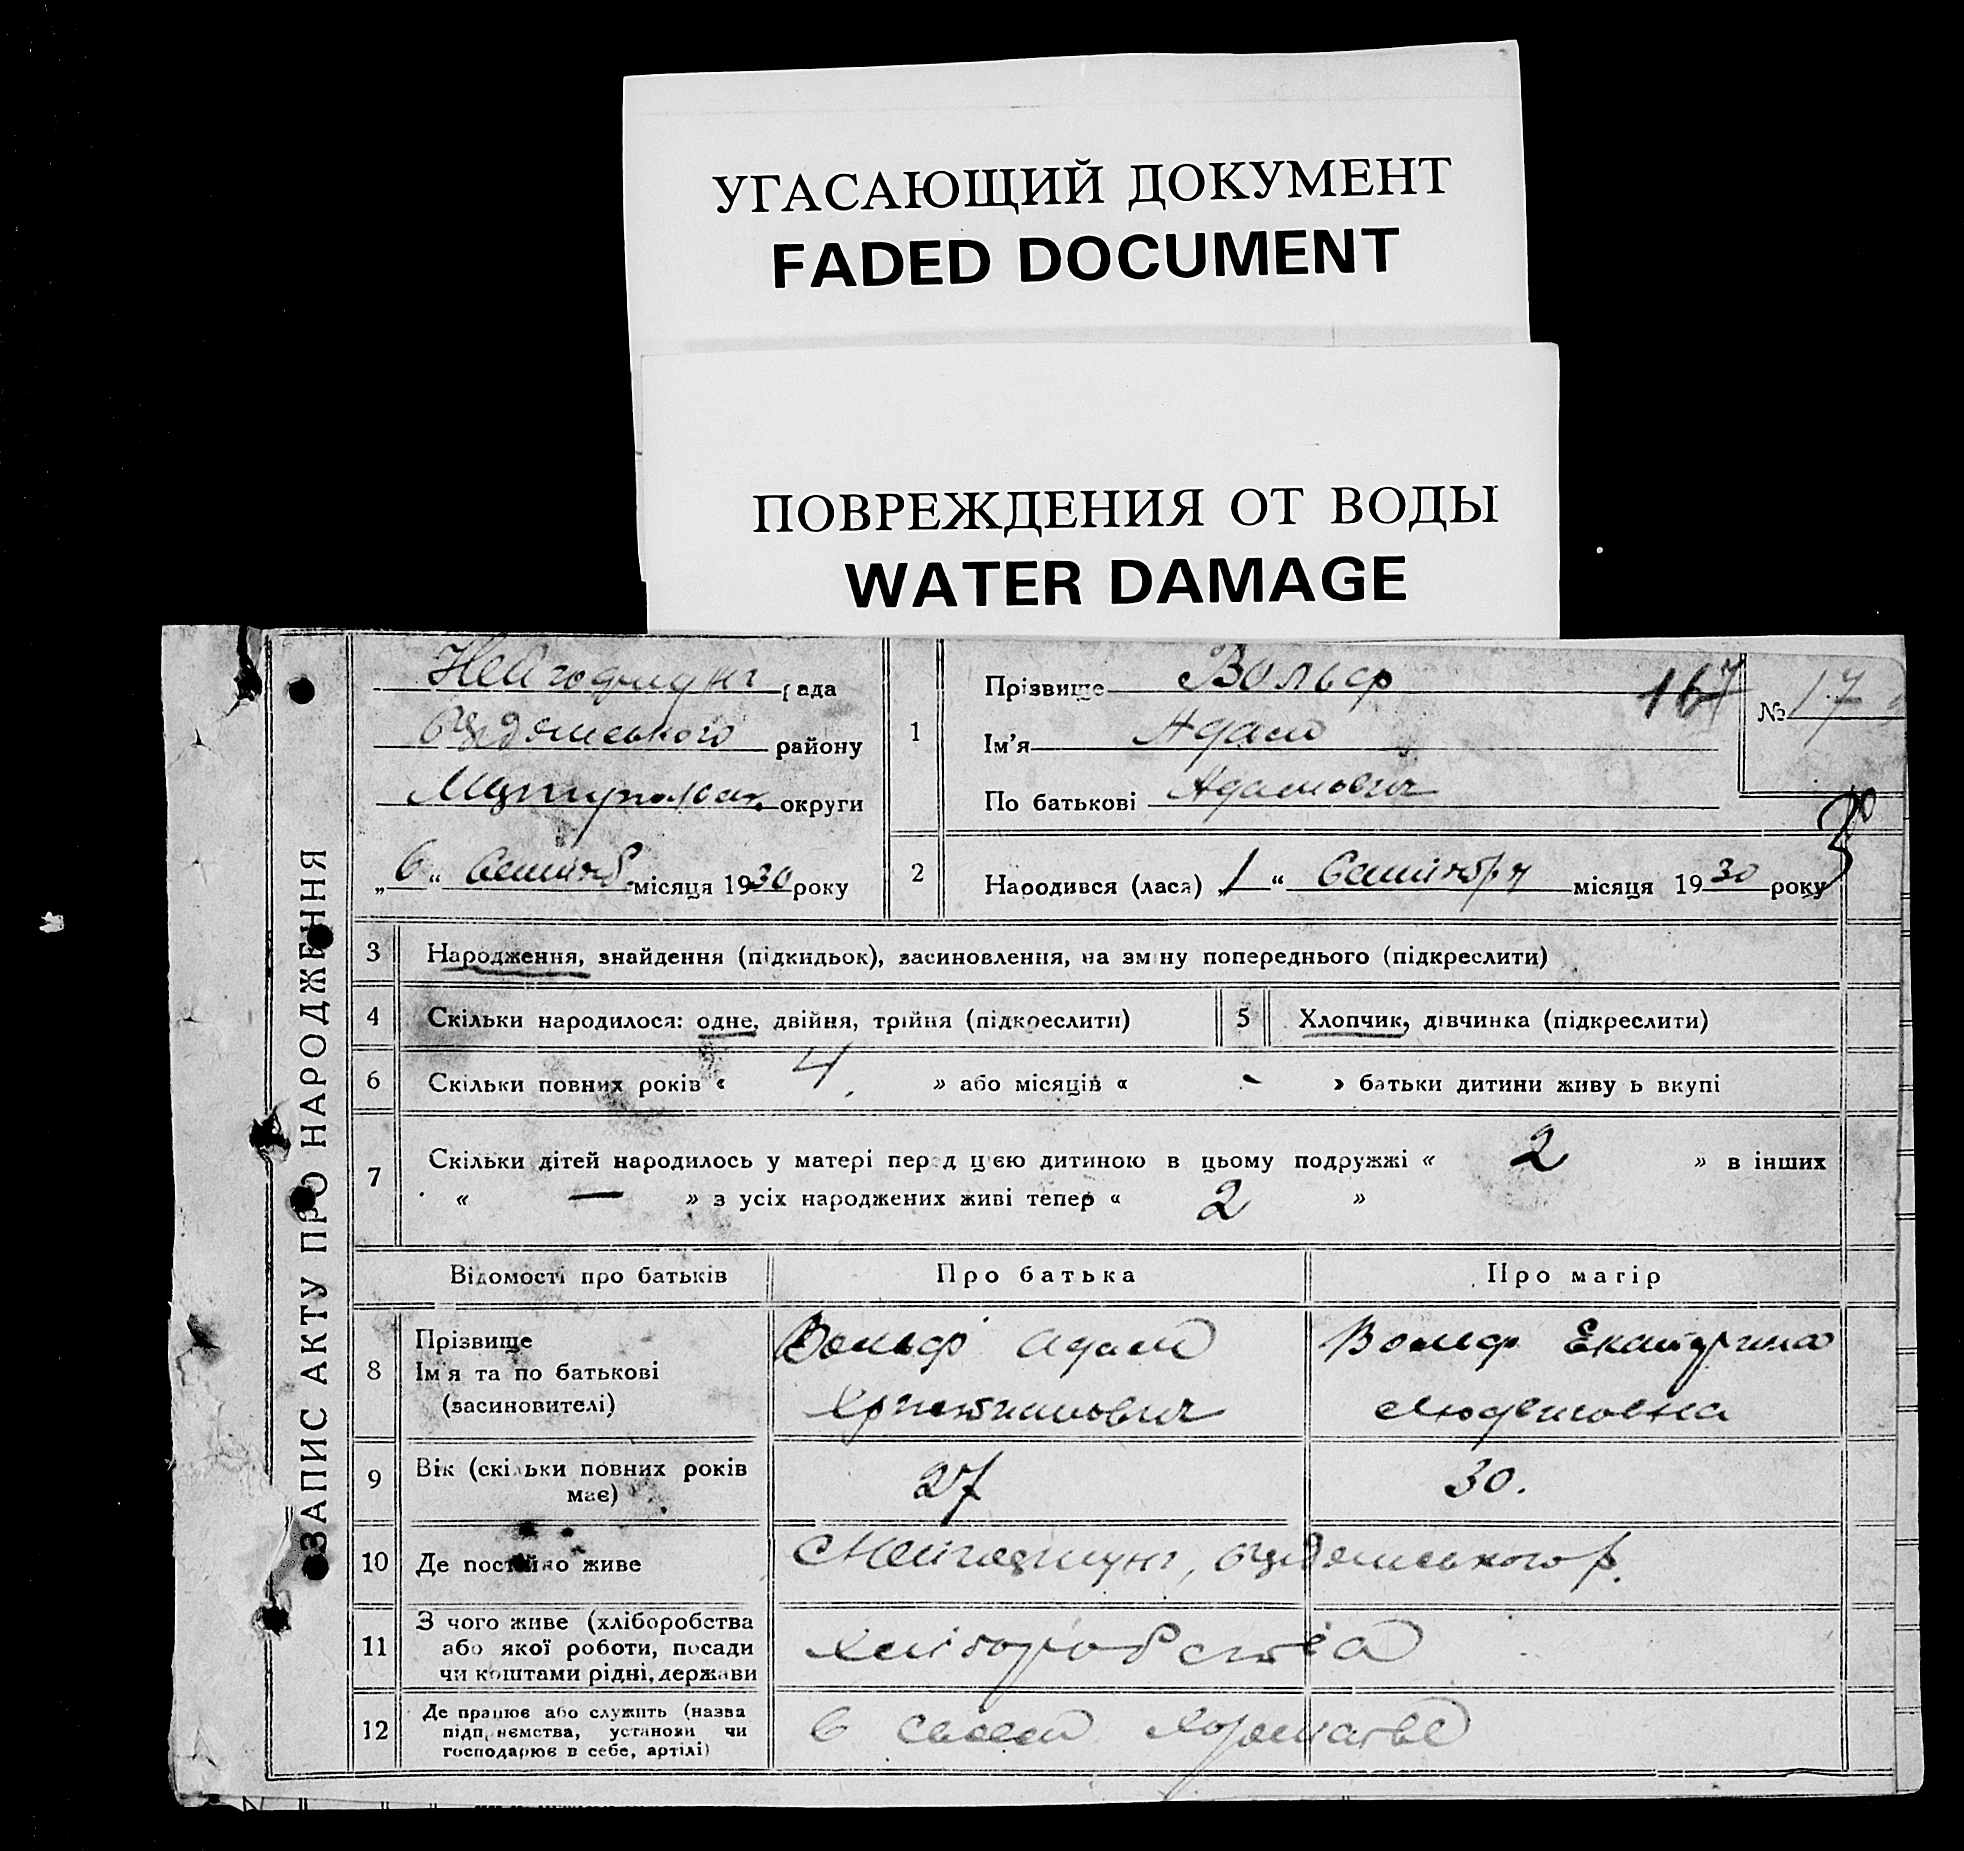 УГАСАЮЩИЙ ДОКУМЕНТ
FADED DOCUMENT
ПОВРЕЖДЕНИЯ ОТ ВОДЫ
WATER DAMAGE
ЗАПИС АКТУ ПРО НАРОДЖЕННЯ
рада
району
округи
„6“ місяця 1930 року
1
Прізвище Вольф
Ім'я Адам
По батькові Адамович
167
№ 17
30
2
Народився (лася) „1“ місяця 1930 року
3 Народження, знайдення (підкидьок), засиновлення, на зміну попереднього (підкреслити)
4 Скільки народилося: одне, двійня, трійня (підкреслити)
5 Хлопчик, дівчинка (підкреслити)
6 Скільки повних років « 4. » або місяців « - » батьки дитини живу ь вкупі
7 Скільки дітей народилось у матері перед цією дитиною в цьому подружжі « 2 » в інших
« — » з усіх народжених живі тепер « 2 »
Відомості про батьків Про батька Про матір
8 Прізвище
Ім'я та по батькові
(засиновителі)
Вольф Адам
Христианович
Вольф Екатерина
Людвиговна
9 Вік (скільки повних років
має)
27
30.
10 Де постійно живе
11 З чого живе (хліборобства
або якої роботи, посади
чи коштами рідні, держави
хліборобства
12 Де працює або служить (назва
підприємства, установи чи
господарює в себе, артілі)